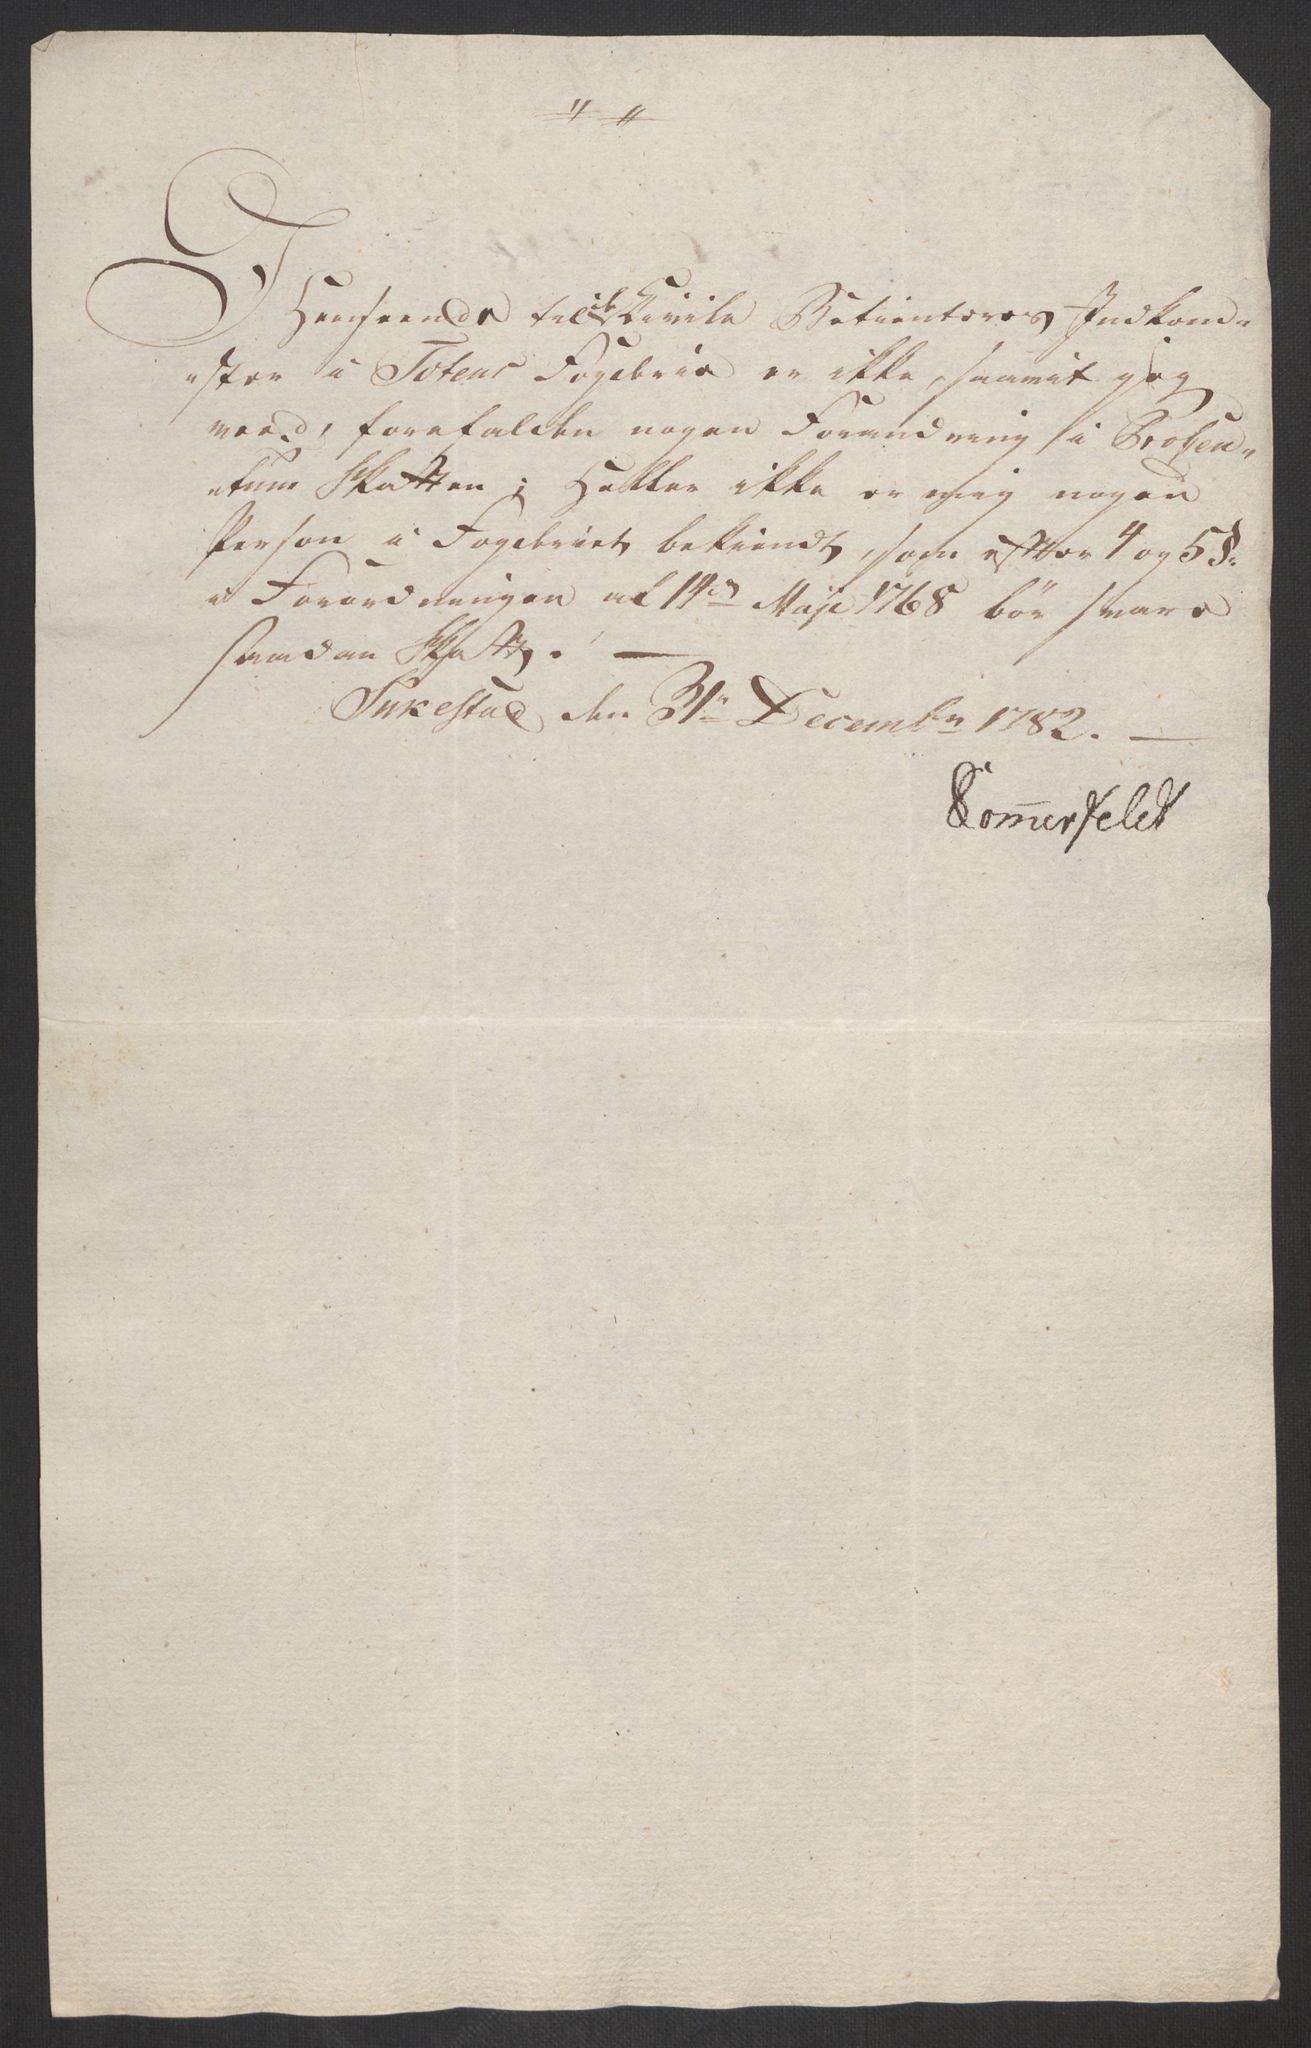 " "
I Henseende til de Civile Betienteres Indkom-
ster i Totens Fogderie er ikke, saavit jeg
veed, forefalden nogen Forandring i Prosen-
tum Skatten; Heller ikke er mig nogen
Person i Fogderiet bekiendt, som efter 4 og 5 §
Forordningen af 14de Maji 1768 bör svare
saadan Skatt. —
Sukestad den 31te Decembr 1782. —
Sommerfeldt